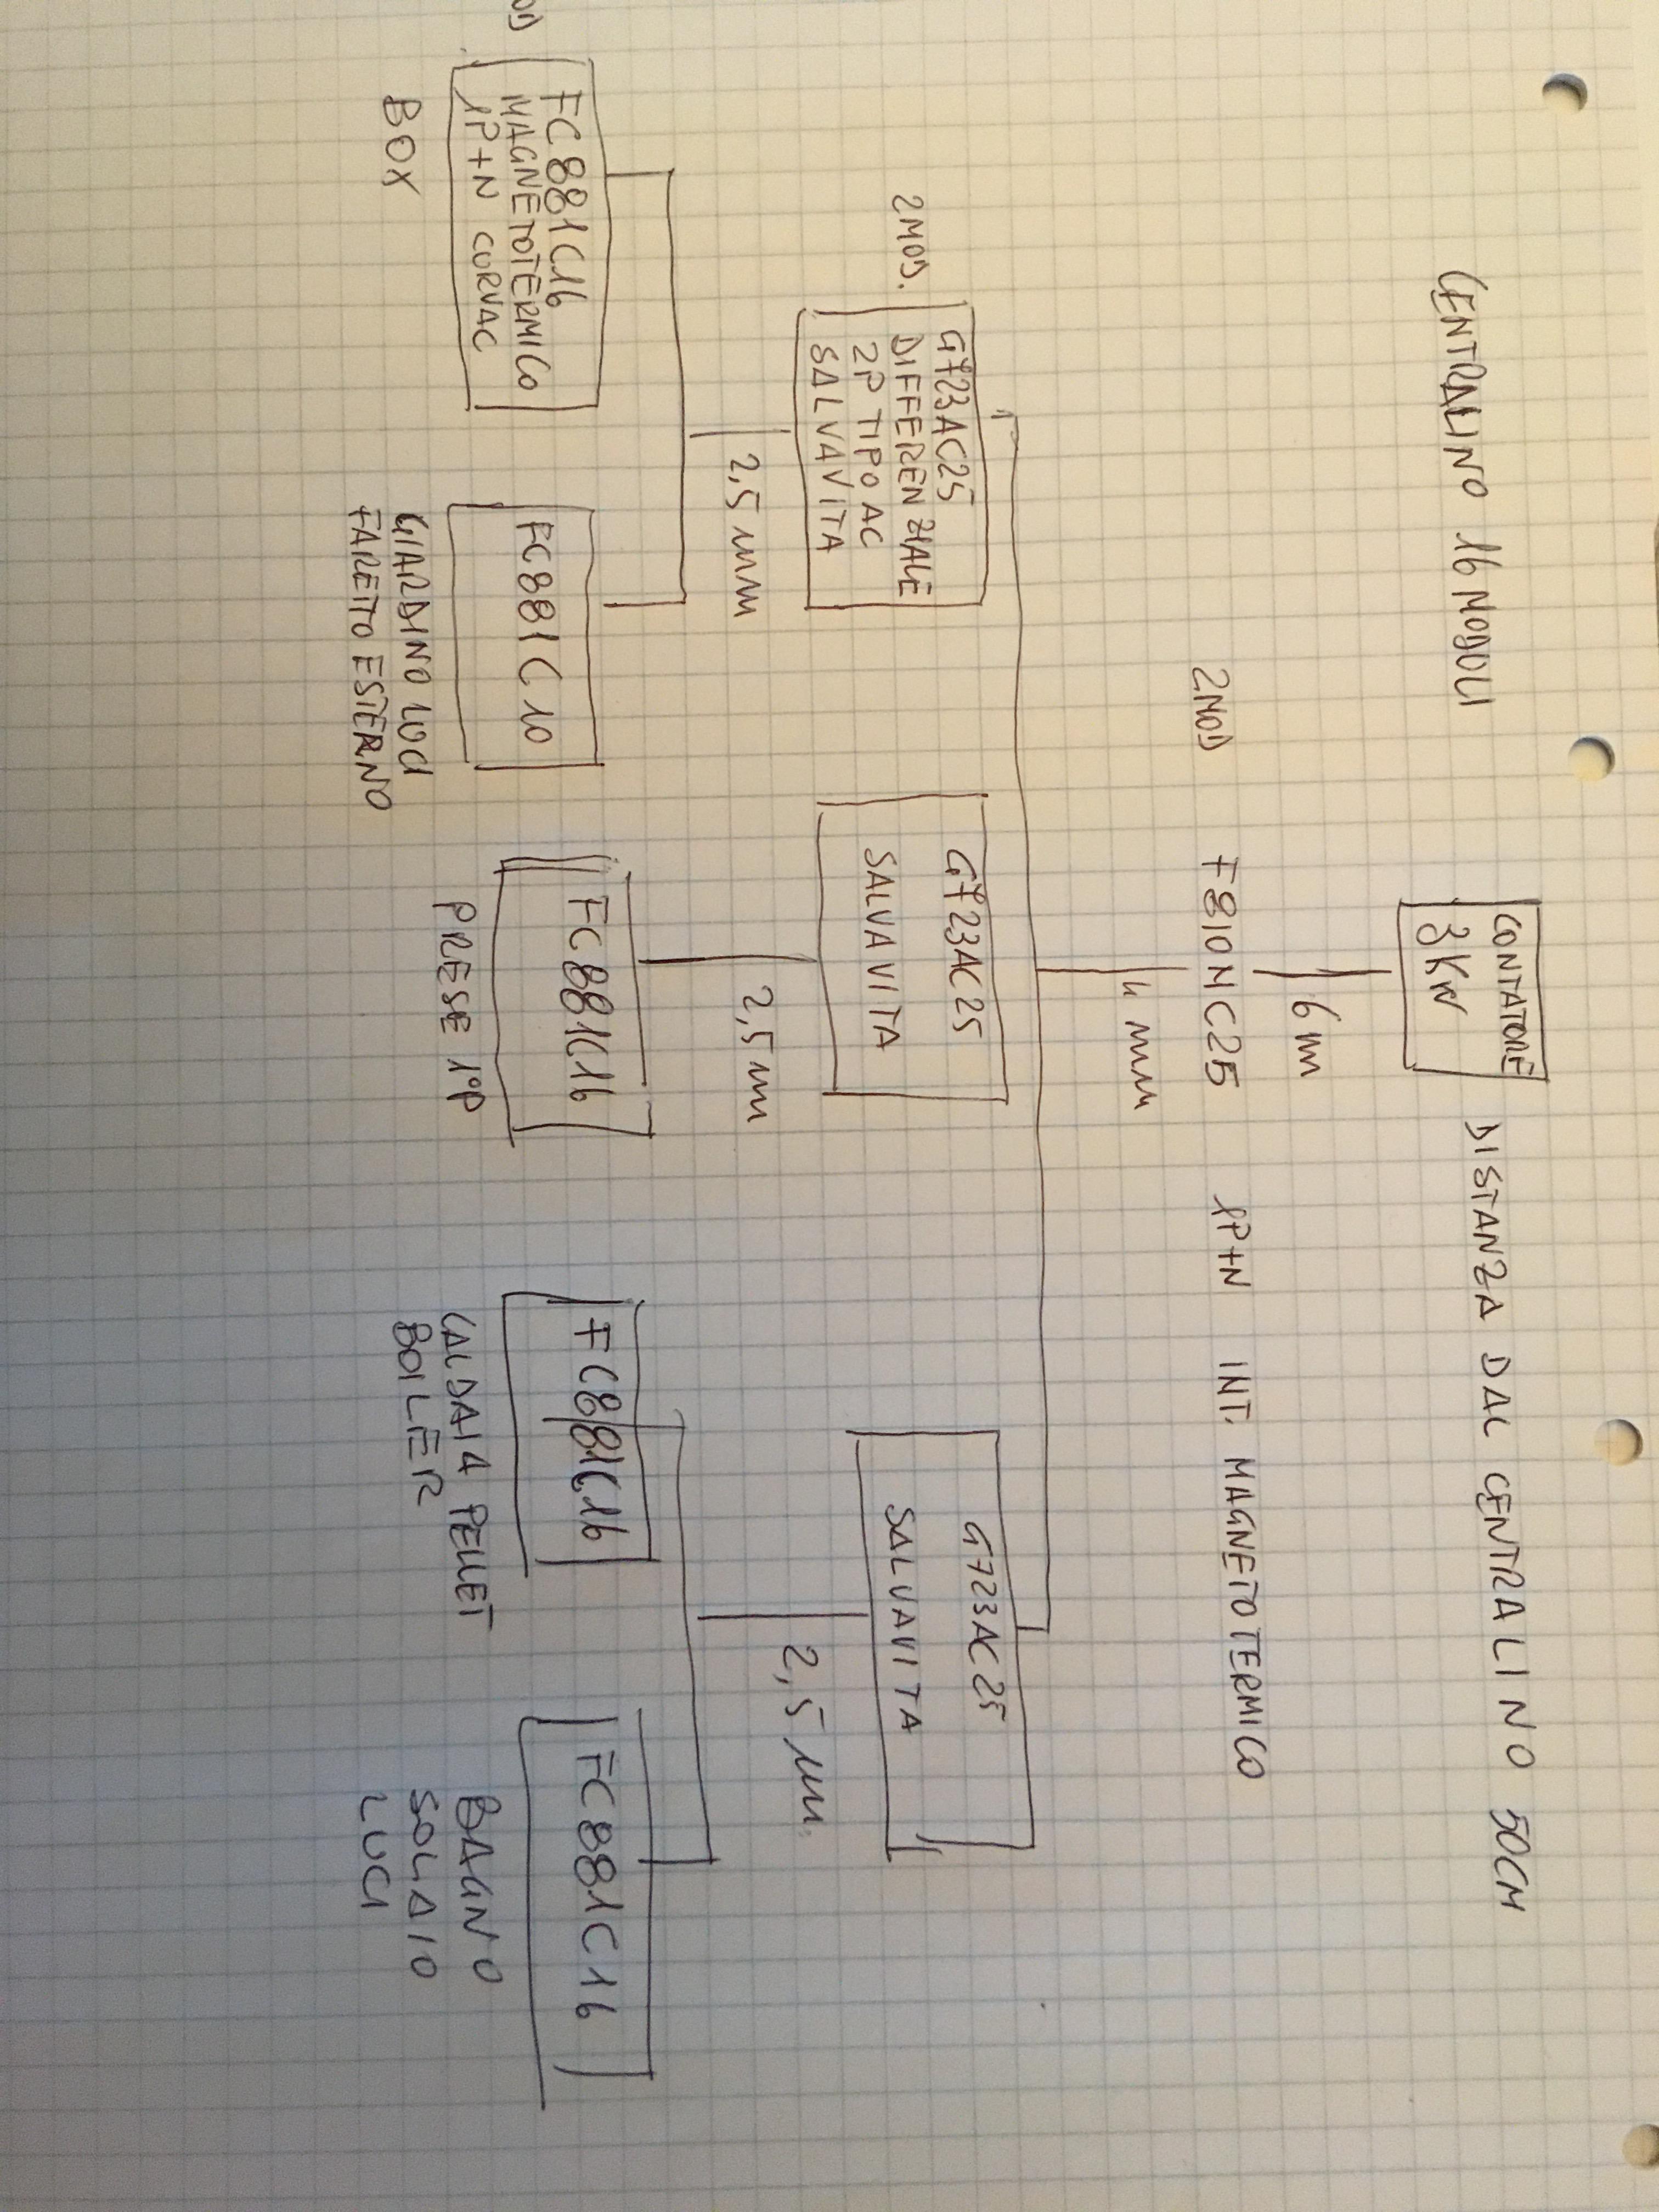 CENTRALINO 16 MODULI
CONTATORE
3 KW
DISTANZA DAL CENTRALINO 50CM
6 m
2MOD
F810NC25
1P+N
INT. MAGNETOTERMICO
4 mm
2MOD.
G723AC25
DIFFERENZIALE
2P TIPO AC
SALVAVITA
G723AC25
SALVAVITA
G723AC25
SALVAVITA
2,5 mm
2,5 mm
2,5 mm.
FC881C16
MAGNETOTERMICO
1P+N CURVAC
BOX
FC881C10
GIARDINO LUCI
FARETTO ESTERNO
FC881C16
PRESE 1°P
FC881C16
CALDAIA PELLET
BOILER
FC881C16
BAGNO
SOLAIO
LUCI